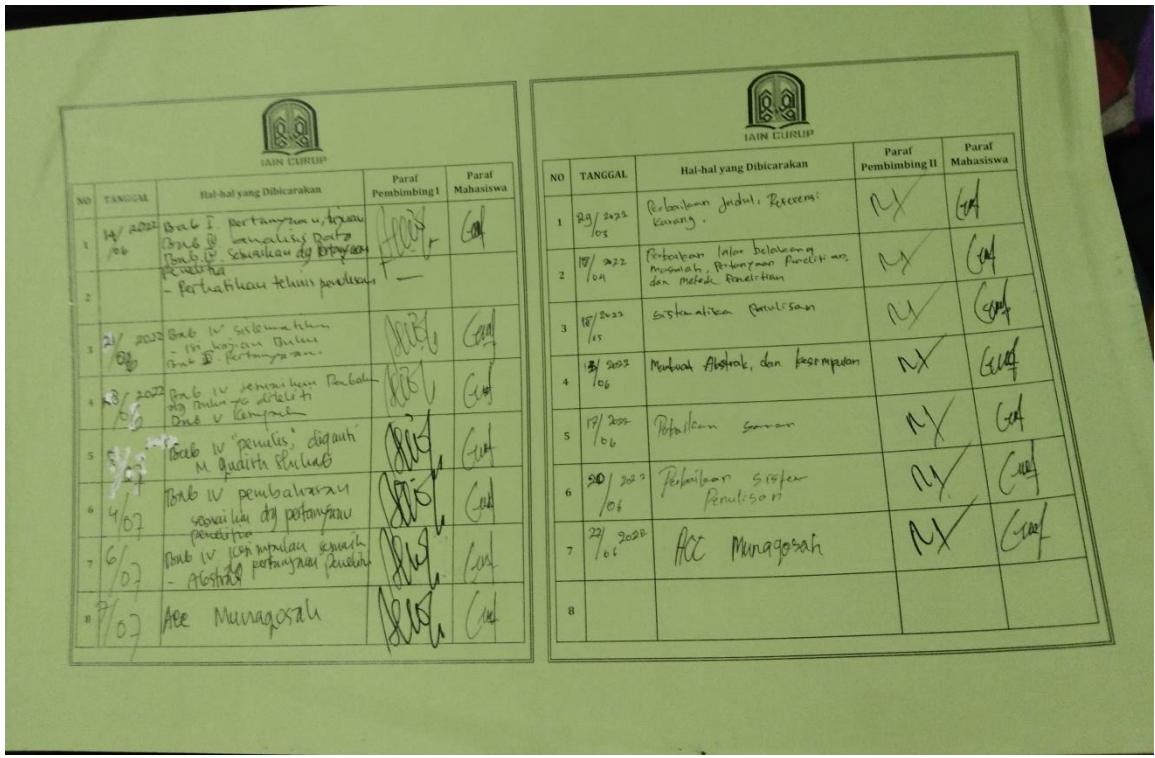 IAIN CURUP
NO TANGGAL Hal-hal yang Dibicarakan Paraf Pembimbing I Paraf Mahasiswa
1 14/06 2022 Bab I. Pertanyaan, tujuan
Bab III analisis Data
Bab IV. Sesuaikan dg pertanyaan
penelitia
2 - Perhatikan teknis penulisan
3 21/ 2022 Bab IV sistematikan
- isi kajian Buku
Bab Pertanyaan.
4 2022 Bab IV sesuaikan
dg Buku yg diteliti
Bab V
5 /07 Bab IV "penulis" diganti
M Quraish Shihab
6 4/07 Bab IV pembahasan
sesuaikan dg pertanyaan
penelitia
7 6/07 Bab IV kesimpulan
pertanyaan
- Abstrak
8 7/07 Acc Munaqosah
IAIN CURUP
NO TANGGAL Hal-hal yang Dibicarakan Paraf Pembimbing II Paraf Mahasiswa
1 29/03 2022 Perbaikan Judul, Referensi
Kurang.
2 /04 2022 Perbaikan latar belakang
masalah, Pertanyaan Penelitian,
dan metode Penelitian
3 /05 2022 Sistematika Penulisan
4 /06 2022 Membuat Abstrak, dan kesimpulan
5 17/06 2022 Perbaikan saran
6 20/06 2022 Perbaikan sistem
Penulisan
7 22/06 2022 ACC Munaqosah
8